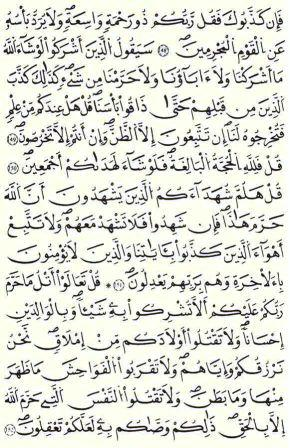 فَإِن كَذَّبُوكَ فَقُل رَّبُّكُمْ ذُو رَحْمَةٍ وَاسِعَةٍ وَلَا يُرَدُّ بَأْسُهُ
عَنِ الْقَوْمِ الْمُجْرِمِينَ سَيَقُولُ الَّذِينَ أَشْرَكُوا لَوْ شَاءَ اللَّهُ
مَا أَشْرَكْنَا وَلَا ءَابَاؤُنَا وَلَا حَرَّمْنَا مِن شَيْءٍ كَذَٰلِكَ كَذَّبَ
الَّذِينَ مِن قَبْلِهِمْ حَتَّىٰ ذَاقُوا بَأْسَنَا قُلْ هَلْ عِندَكُم مِّنْ عِلْمٍ
فَتُخْرِجُوهُ لَنَا إِن تَتَّبِعُونَ إِلَّا الظَّنَّ وَإِنْ أَنتُمْ إِلَّا تَخْرُصُونَ
قُلْ فَلِلَّهِ الْحُجَّةُ الْبَالِغَةُ فَلَوْ شَاءَ لَهَدَاكُمْ أَجْمَعِينَ
قُلْ هَلُمَّ شُهَدَاءَكُمُ الَّذِينَ يَشْهَدُونَ أَنَّ اللَّهَ
حَرَّمَ هَٰذَا فَإِن شَهِدُوا فَلَا تَشْهَدْ مَعَهُمْ وَلَا تَتَّبِعْ
أَهْوَاءَ الَّذِينَ كَذَّبُوا بِـَٔايَاتِنَا وَالَّذِينَ لَا يُؤْمِنُونَ
بِالْـَٔاخِرَةِ وَهُم بِرَبِّهِمْ يَعْدِلُونَ ۞ قُلْ تَعَالَوْا أَتْلُ مَا حَرَّمَ
رَبُّكُمْ عَلَيْكُمْ أَلَّا تُشْرِكُوا بِهِ شَيْئًا وَبِالْوَالِدَيْنِ
إِحْسَانًا وَلَا تَقْتُلُوا أَوْلَادَكُم مِّنْ إِمْلَاقٍ نَّحْنُ
نَرْزُقُكُمْ وَإِيَّاهُمْ وَلَا تَقْرَبُوا الْفَوَاحِشَ مَا ظَهَرَ
مِنْهَا وَمَا بَطَنَ وَلَا تَقْتُلُوا النَّفْسَ الَّتِي حَرَّمَ اللَّهُ
إِلَّا بِالْحَقِّ ذَٰلِكُمْ وَصَّاكُم بِهِ لَعَلَّكُمْ تَعْقِلُونَ